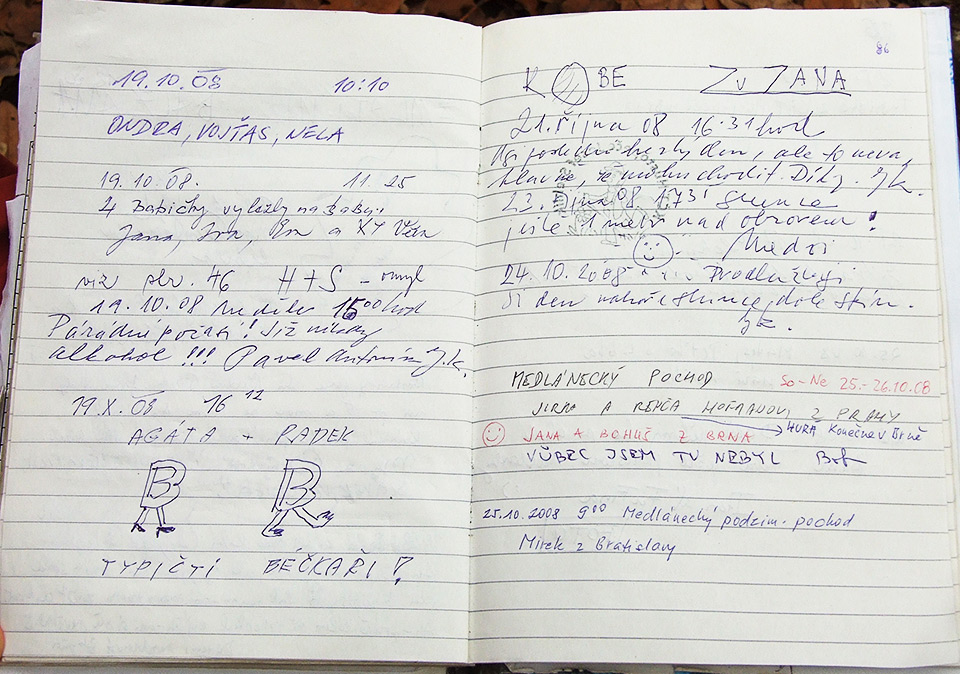 19.10.08 10:10
ONDRA, VOJŤAS, NELA
19.10.08. 11.25
4 Babičky vylezly na
Jana, a XY
viz str. 46 H+S – omyl
19.10.08 neděle 15 00 hod
Parádní počasí!! Již nikdy
alkohol !!! Pavel Antonín J.K.
19.X.08 16 12
AGÁTA + RADEK
B B
TYPIČTÍ BÉČKAŘI!
86
KOBE ZUZANA
21. října 08 16.31 hod
poslední hezký den, ale to neva,
hlavně, že mohu chodit. Díky. J.K.
23. října 08 1731 Slunce
ještě 1 metr nad obzorem!
Medzi
24.10.2008 Prodlužuji
si den nahoře slunce, dole stín.
J.K.
MEDLÁNECKÝ POCHOD So-Ne 25.-26.10.08
JIRKA A HOFMANOVI Z PRAHY
HURÁ Konečně v Brně
JANA A BOHUŠ Z BRNA
VŮBEC JSEM TU NEBYL
25.10.2008 9 00 Medlánecký podzim. pochod
Mirek z Bratislavy